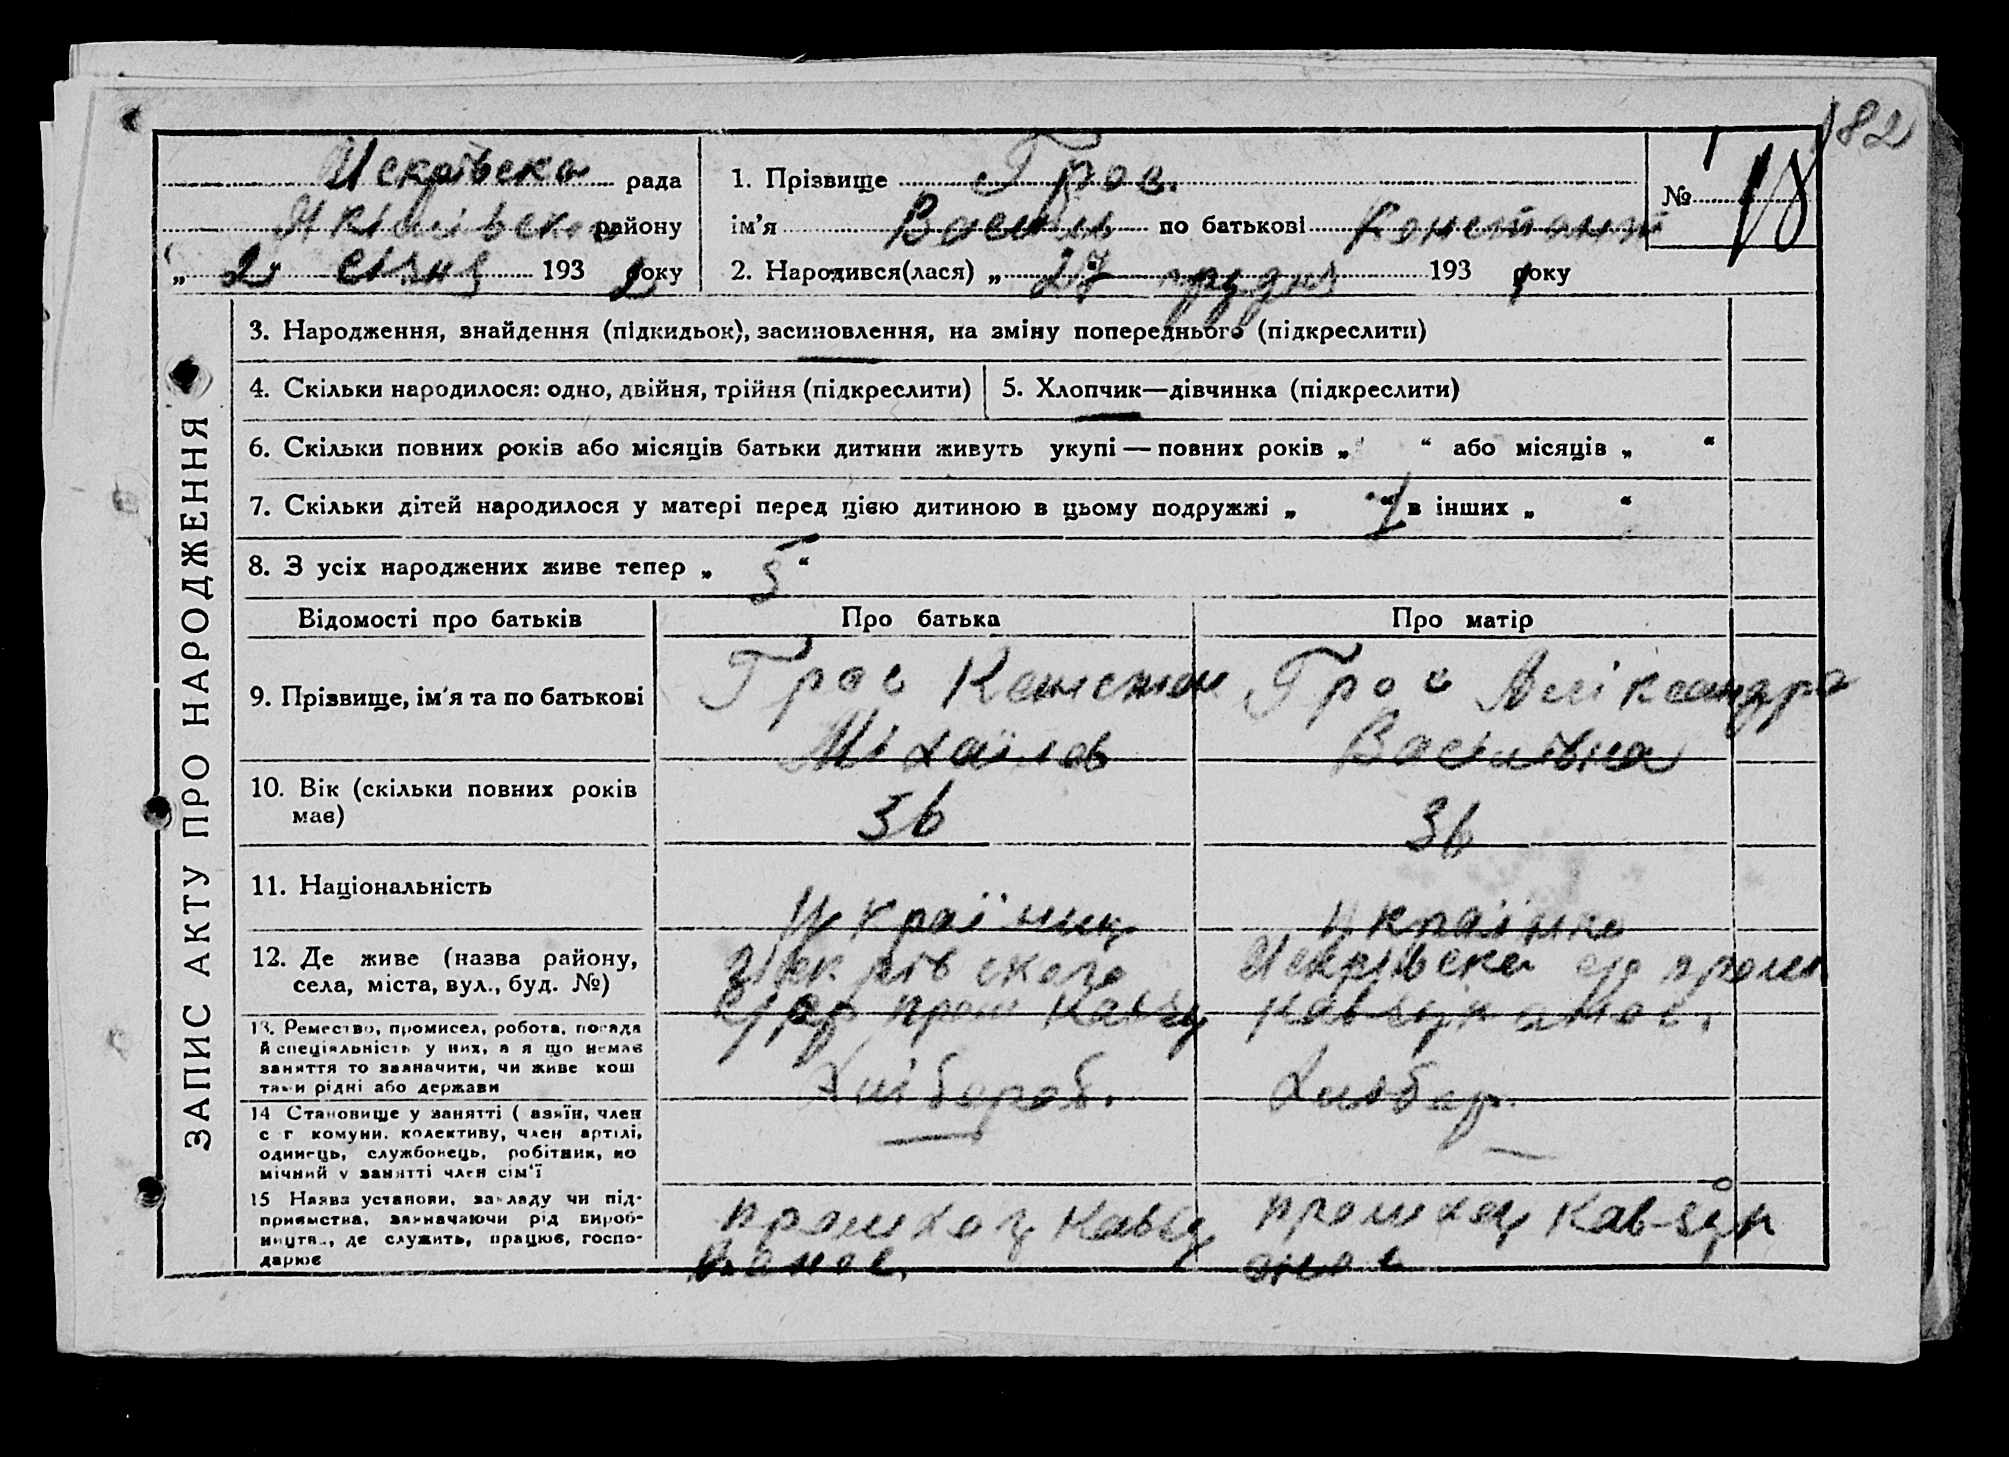 182
Искрівска рада
Якимівского району
„ 2 " січня 1932 року
1. Прізвище Грос.
№ 18
ім’я Василь по батькові Констант
2. Народився(лася) „ 27 грудня 1931 року
ЗАПИС АКТУ ПРО НАРОДЖЕННЯ
3. Народження, знайдення (підкидьок), засиновлення, на зміну попереднього (підкреслити)
4. Скільки народилося: одно, двійня, трійня (підкреслити) 5. Хлопчик—дівчинка (підкреслити)
6. Скільки повних років або місяців батьки дитини живуть укупі — повних років „ “ або місяців „ “
7. Скільки дітей народилося у матері перед цією дитиною в цьому подружжі „ 7 “ в інших „ “
8. З усіх народжених живе тепер „ 5 “
Відомості про батьків Про батька Про матір
9. Прізвище, ім’я та по батькові
Грос Констан Грос Аліксандра
Міхайлов Василівна
10. Вік (скільки повних років
має)
36 36
11. Національність
Українец Українка
12. Де живе (назва району,
села, міста, вул., буд. №)
Искрівска
13. Ремество, промисел, робота, посада
й спеціяльність у них, а я що немає
заняття то зазначити, чи живе кош
тами рідні або держави
Хлібороб. Хлібор.
14 Становище у занятті ( азяїн, член
с г комуни, колективу, член артілі,
одинець, службовець, робітник, по
мічний у занятті член сім’ї
15 Назва установи, закладу чи під-
приємства, зазначаючи рід вироб-
ництва, де служить, працює, госпо-
дарює